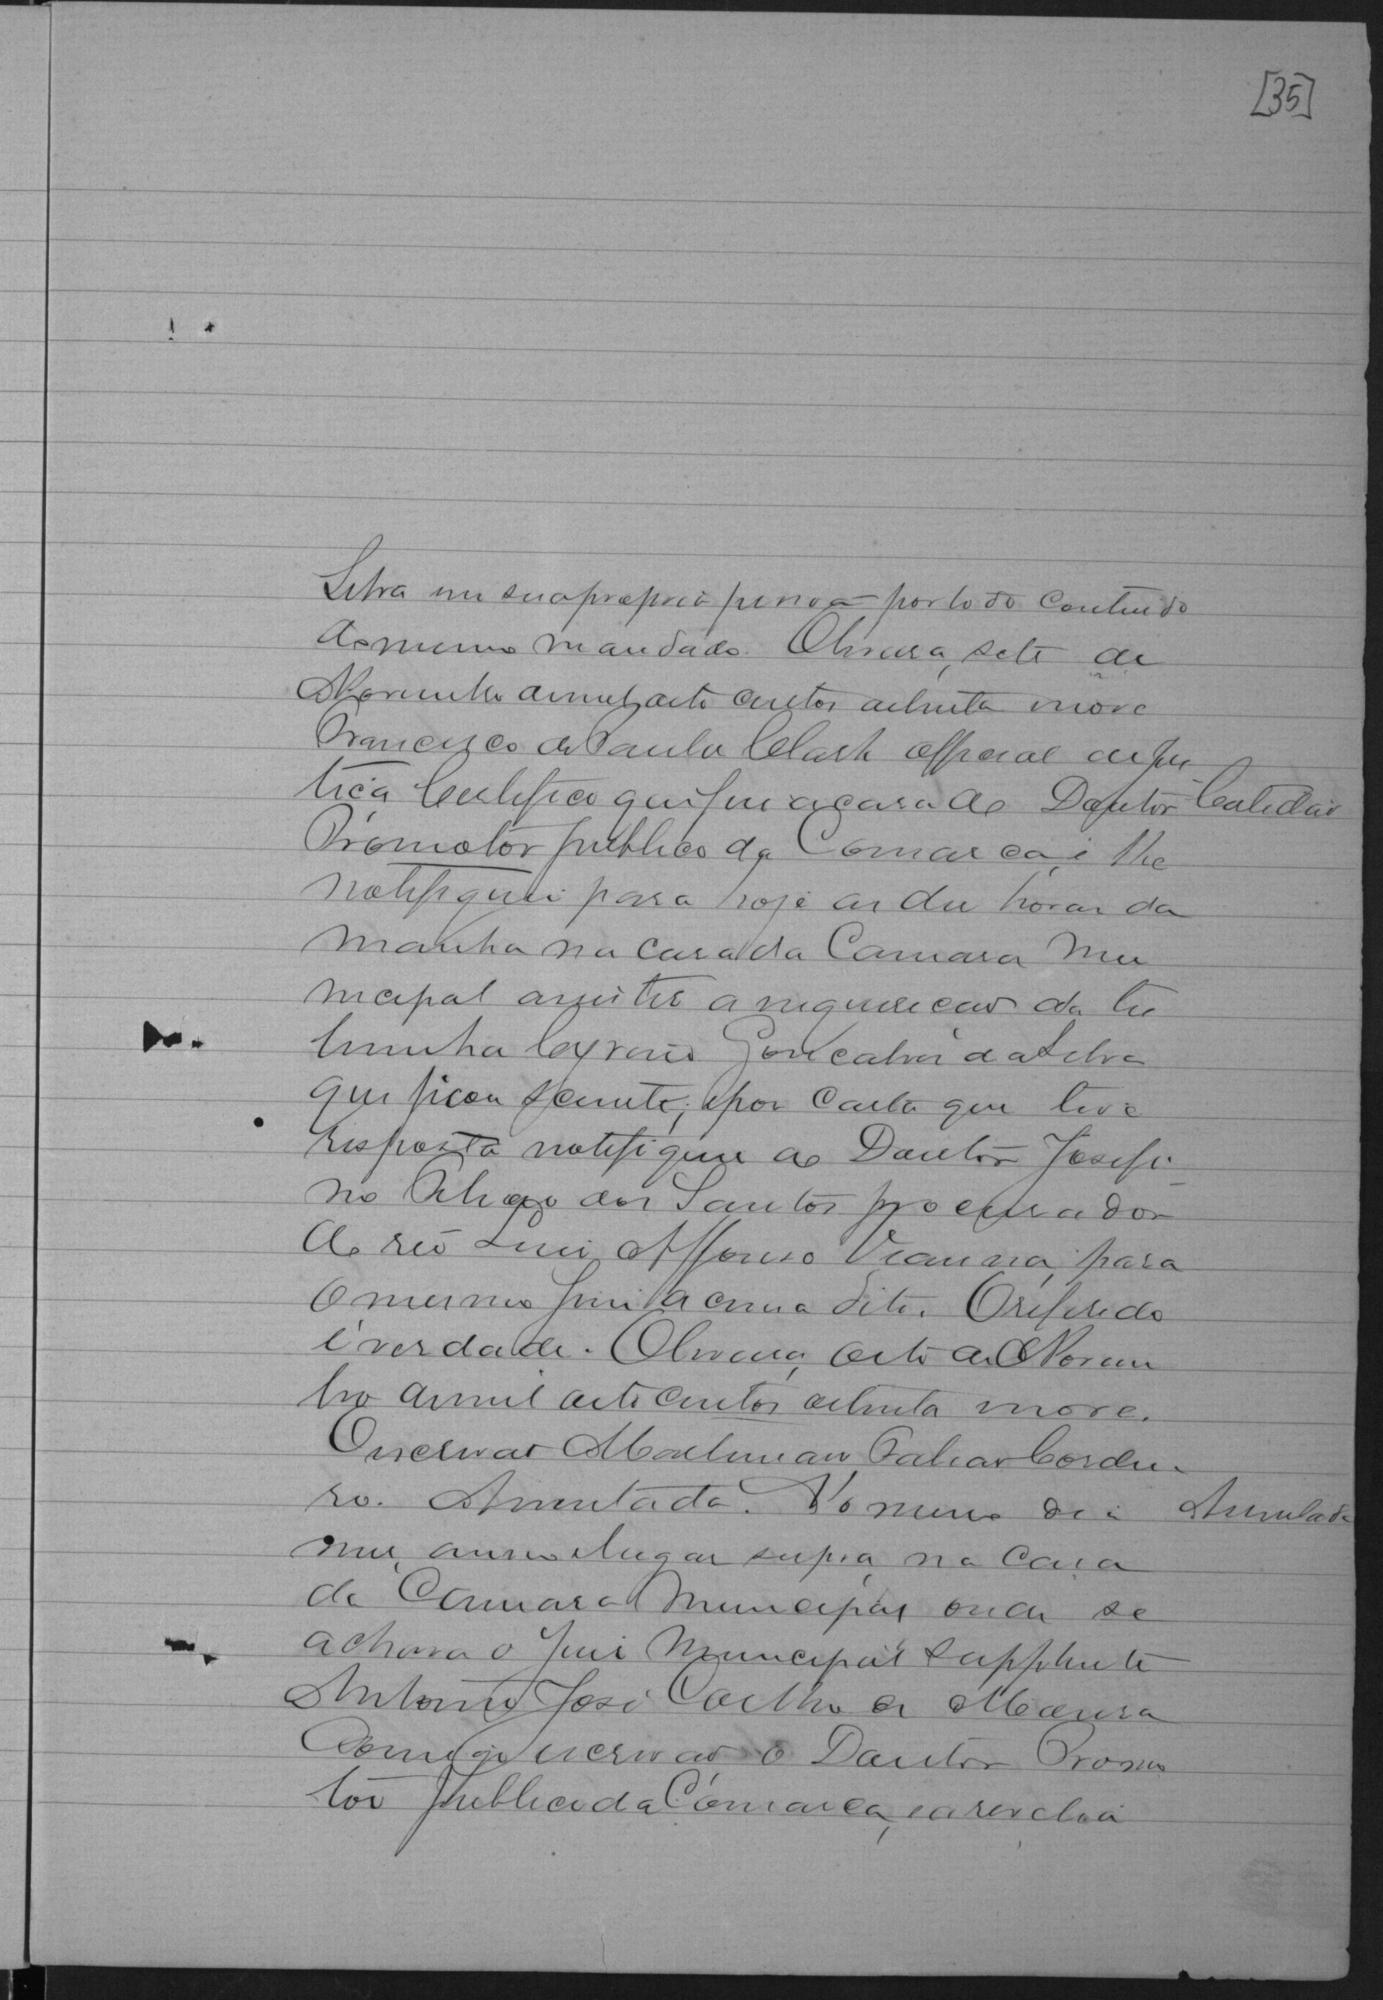 [35]
Silva em sua propria pessoa por todo contendo
do mesmo mandado. Oliveira, sete de
Novembro de mil oito centos oitenta nove
Francisco de Paula Clark official de jus
tiça Certifico que fui a casa do Doutor Certidão
Promotor publico da Comarca, e lhe
notifiquei para hoje as dez horas da
manha na casa da Camara Mu
nicipal assistir a inquirição da tes
temunha Cypriano Gonçalves da Silva
que ficou sciente; e por carta que tive
resposta notifiquei ao Doutor Josefi
no dos Santos procurador
do réo Luis Affonso Vianna, para
o mesmo fim acima dito. O referido
é verdade. Oliveira, oito de Novem
bro de mil oito centos oitenta nove.
O escrivão Cordei
ro. Assentada. No mesmo dia Assentada
mes, anno e lugar supra, na casa
da Camara Municipal onde se
achava o Juiz Municipal Supplente
Antonio José Coelho de Moura
Comigo escrivão o Doutor Promo
tor publico da Comarca, a revelia